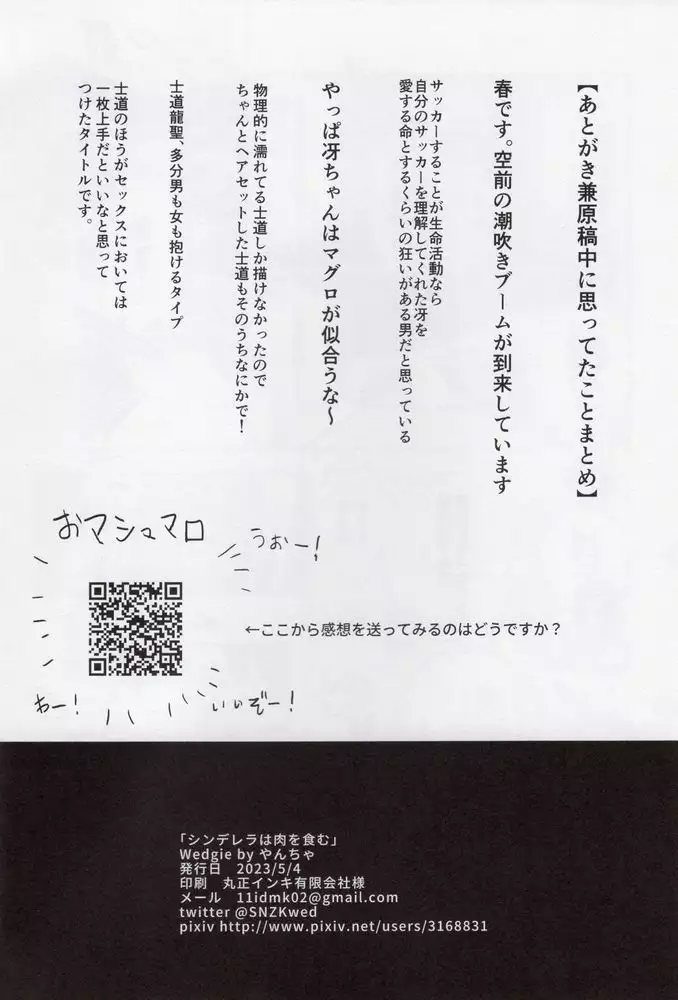 【あとがき兼原稿中に思ってたことまとめ】
春です。空前の潮吹きブームが到来しています
サッカーすることが生命活動なら
自分のサッカーを理解してくれた冴を
愛する命とするくらいの狂いがある男だと思っている
やっぱ冴ちゃんはマグロが似合うな～
物理的に濡れてる士道しか描けなかったので
ちゃんとヘアセットした士道もそのうちなにかで！
士道龍聖、多分男も女も抱けるタイプ
士道のほうがセックスにおいては
一枚上手だといいなと思って
つけたタイトルです。
おマシュマロ
うおー！
←ここから感想を送ってみるのはどうですか？
わー！
いいぞー！
「シンデレラは肉を食む」
Wedgie by やんちゃ
発行日 2023/5/4
印刷 丸正インキ有限会社様
メール 11idmk02@gmail.com
twitter @SNZKwed
pixiv http://www.pixiv.net/users/3168831